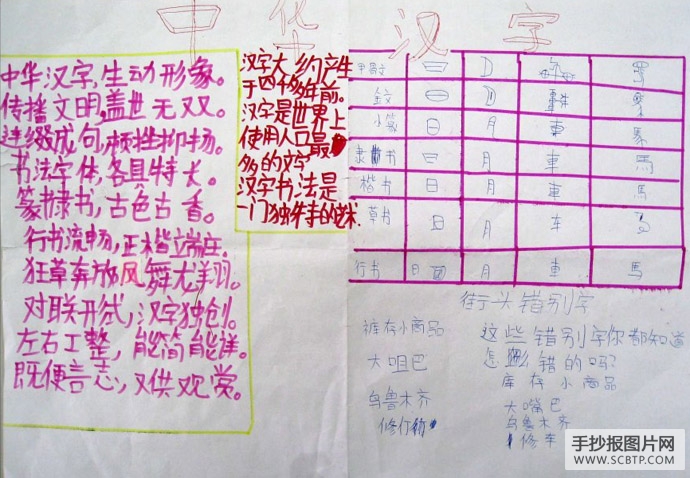 中华汉字
中华汉字,生动形象。
传播文明,盖世无双。
连缀成句,顿挫抑扬。
书法字体,各具特长。
篆隶书,古色古香。
行书流畅,正楷端庄。
狂草奔放,凤舞龙翔。
对联形式,汉字独创。
左右工整,能简能详。
既便言志,又供观赏。
汉字大约产生
于四千多年前。
汉字是世界上
使用人口最
多的文字
汉字书法是
一门独特的艺术.
甲骨文 日 月 車 馬
日 月 車 馬
小篆 日 月 車 馬
隶书 日 月 車 馬
楷书 日 月 車 馬
草书 日 月 车 马
行书 日 月 車 馬
街头错别字
裤存小商品
大咀巴
乌鲁木齐
修仃
这些错别字你都知道
怎么错的吗?
库存小商品
大嘴巴
乌鲁木齐
修车
手抄报图片网
WWW.SCBTP.COM